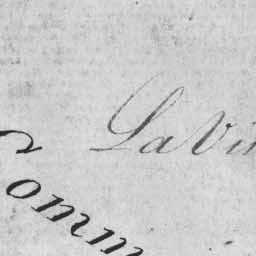 La Vi
Comm